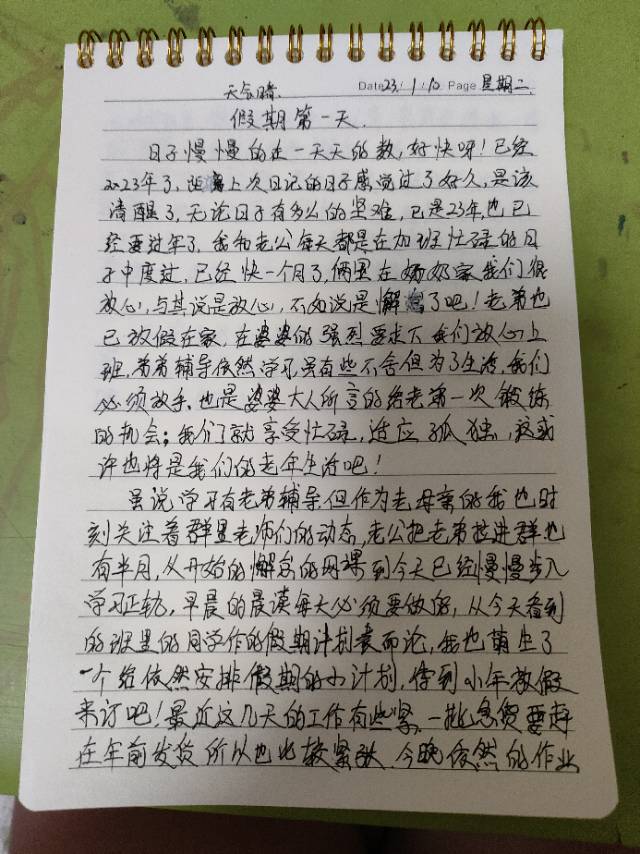 天气晴 Date 23.1.10 Page 星期二
假期第一天.
日子慢慢的走一天天的数,好快呀!已经
2023年了,距离上次日记的日子感觉过了好久,是该
清醒了,无论日子有多么的坚难,已是23年,也已
经要过年了,我和老公每天都是在加班忙碌的日
子中度过,已经快一个月了,俩男在奶奶家我们很
放心,与其说是放心,不如说是懈怠了吧!老弟也
已放假在家,在婆婆的强烈要求下我们放心上
班,弟弟辅导依然学习,虽有些不舍但为了生活,我们
必须放手.也是婆婆大人所言的给老弟一次锻炼
的机会;我们了就享受忙碌,适应孤独,这或
许也将是我们的老年生活吧!
虽说学习有老弟辅导但作为老母亲的我也时
刻关注着群里老师们的动态,老公把老弟拉进群也
有半月,从开始的懈怠的网课到今天已经慢慢步入
学习正轨,早晨的晨读每天必须要做的,从今天看到
的班里的同学作的假期计划表而论,我也萌生了
一个给依然安排假期的小计划,得到小年放假
来订吧!最近这几天的工作有些紧,一批急货要赶
在年前发货所以也比较紧张.今晚依然的作业